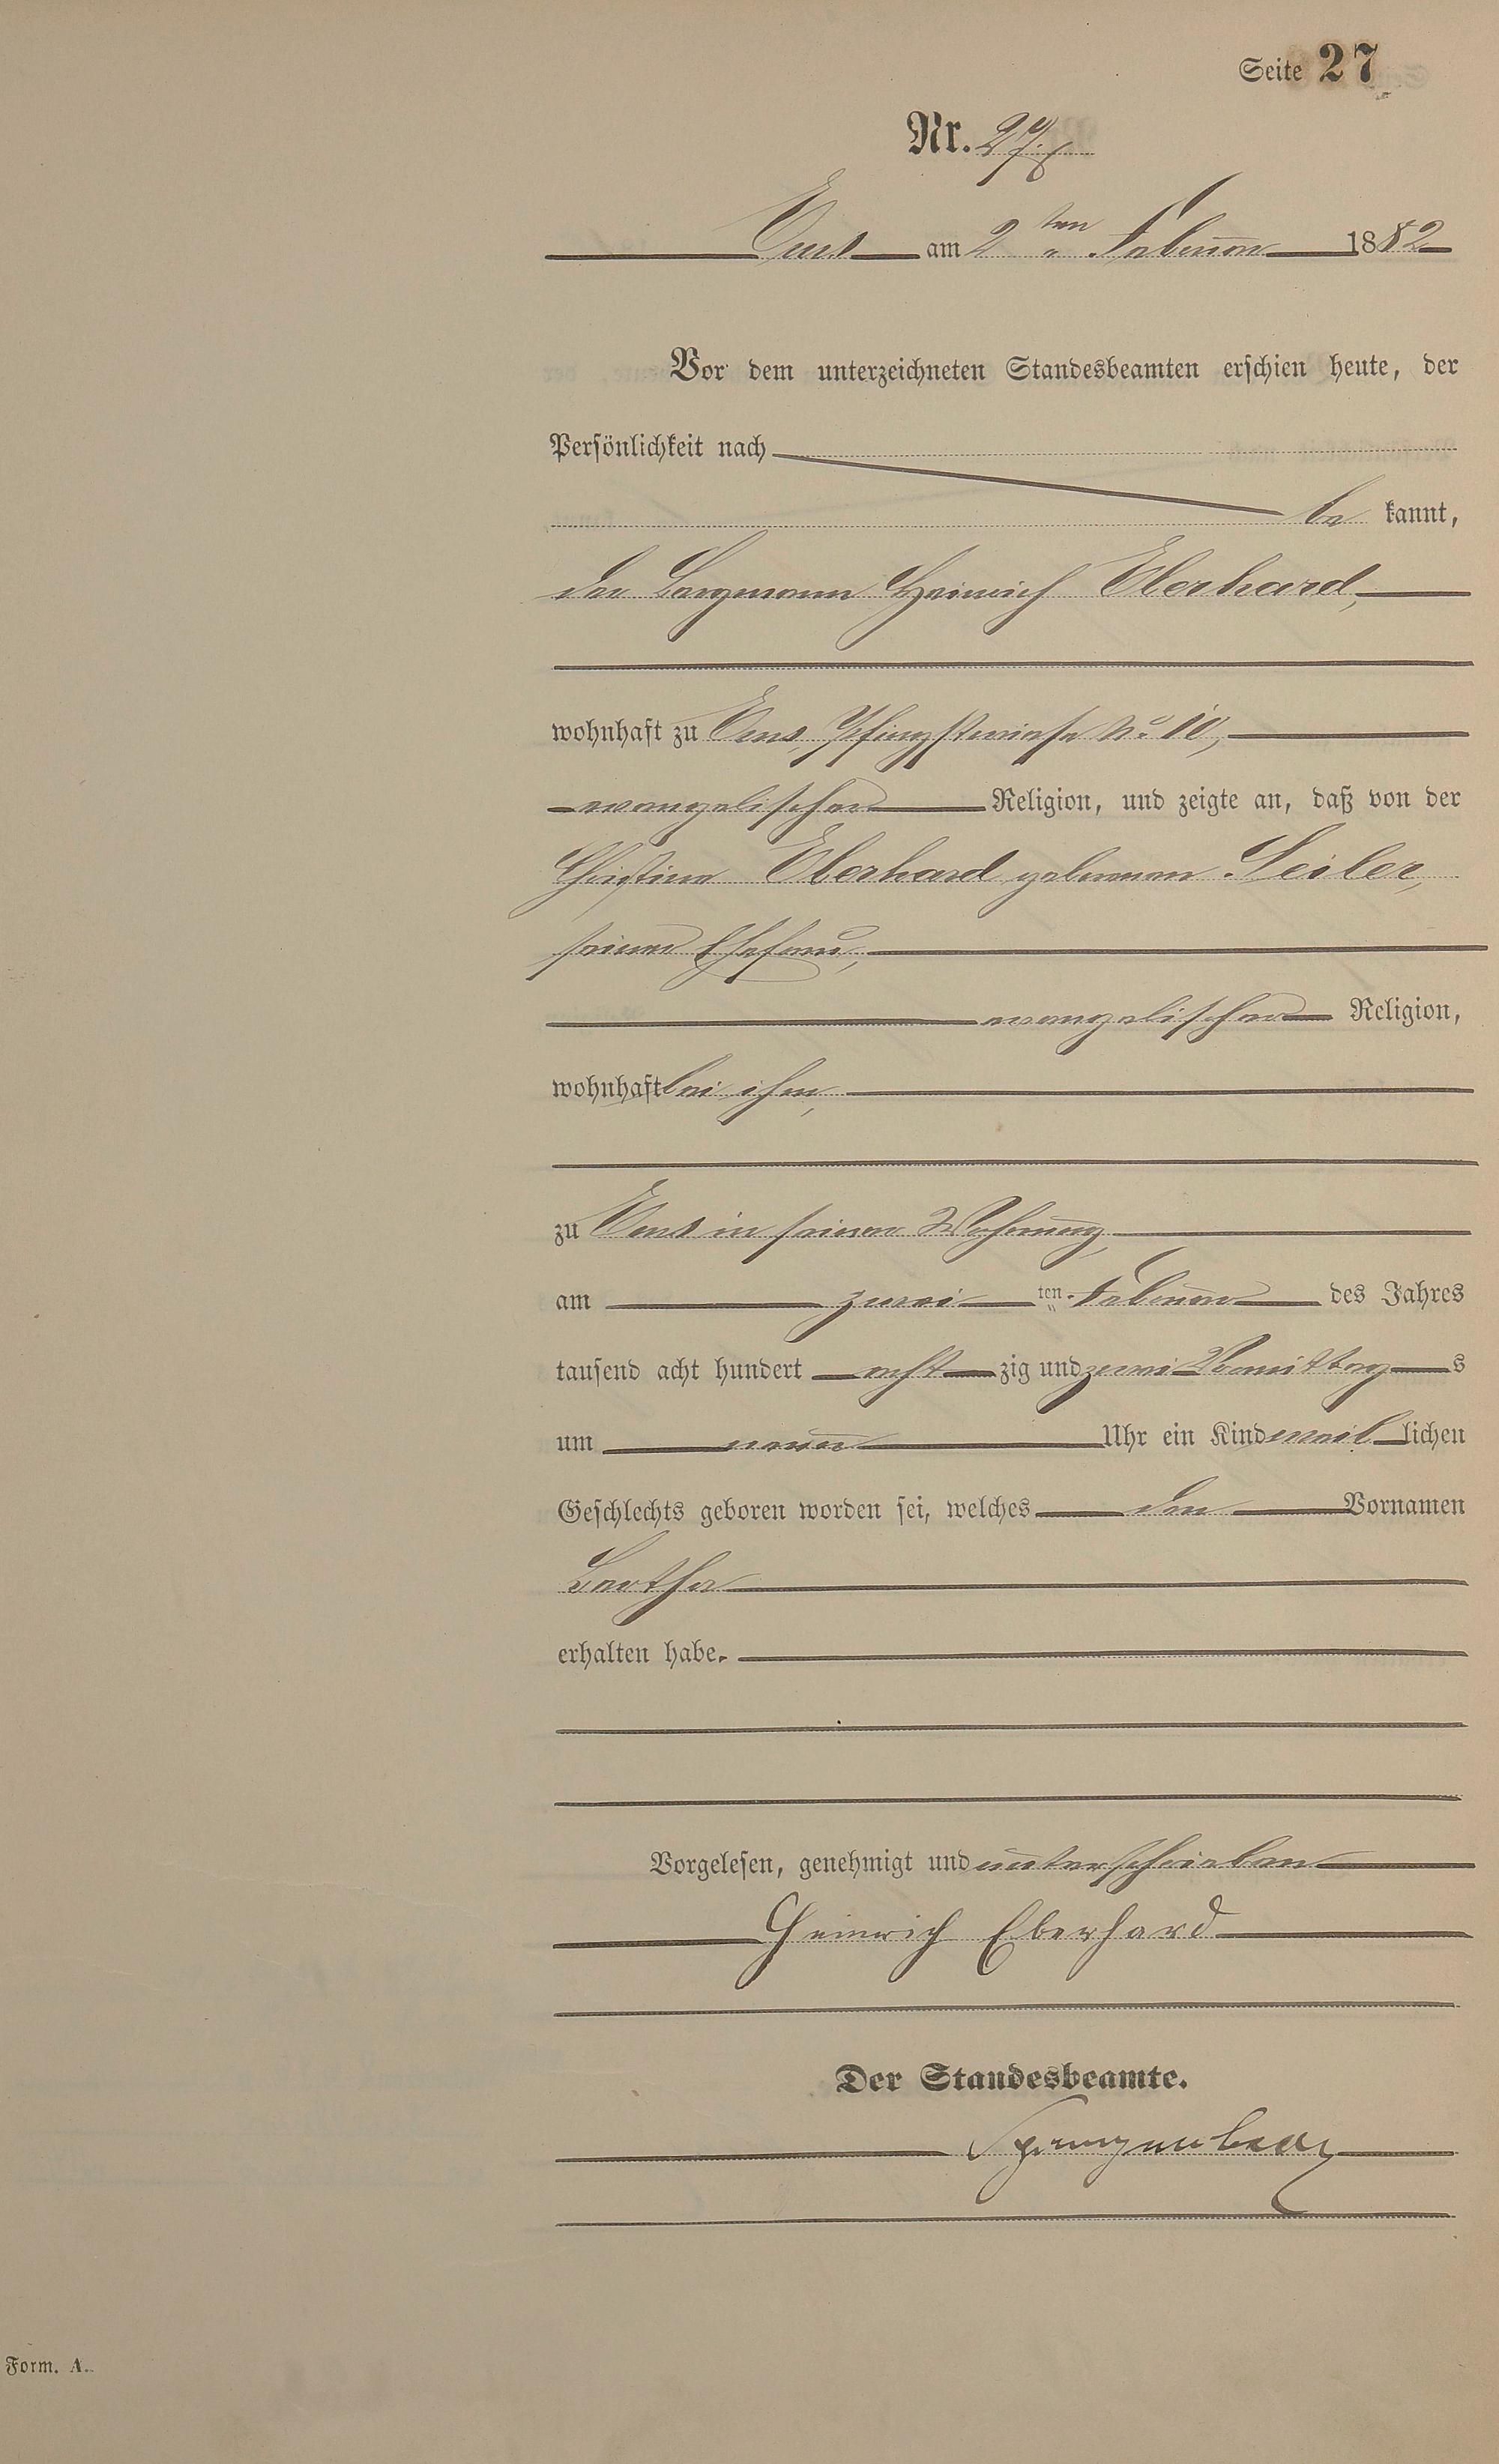 Seite 27
Nr. 27.
Ems am 2 ten Februar 1882
Vor dem unterzeichneten Standesbeamten erschien heute, der
Persönlichkeit nach
be kannt,
der Bergmann Heinrich Eberhard,
wohnhaft zu Ems, Pfingstwiese No 10,
evangelischer Religion, und zeigte an, daß von der
Christine Eberhard geborenen Seiler,
seiner Ehefrau,
evangelischer Religion,
wohnhaft bei ihm,
zu Ems in seiner Wohnung,
am zwei ten Februar des Jahres
tausend acht hundert acht zig und zwei Vormittag s
um neun Uhr ein Kind weib lichen
Geschlechts geboren worden sei, welches den Vornamen
Bertha
erhalten habe.
Vorgelesen, genehmigt und unterschrieben
Heinrich Eberhard
Der Standesbeamte.
Form. A.